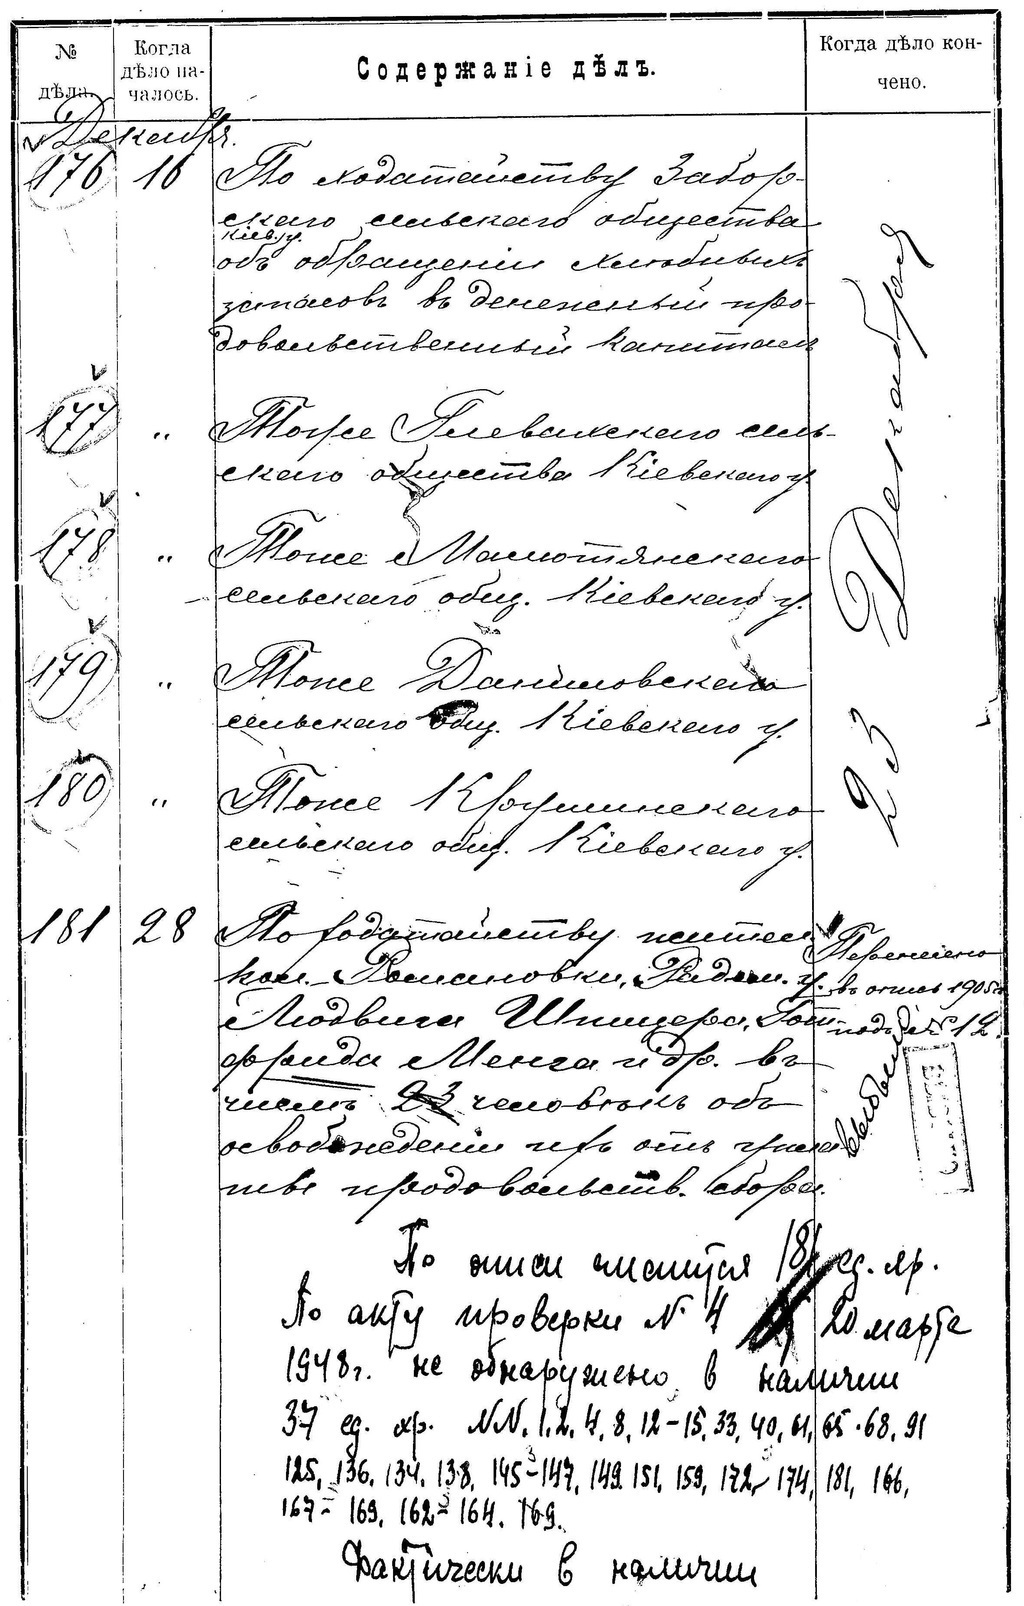 № дѣла.
Когда дѣло на-
чалось.
Содержаніе дѣлъ.
Когда дѣло кон-
чено.
Декабря.
176 16 По ходатайству Забор-
скаго сельскаго общества
Кіев. у.
объ обращеніи хлѣбныхъ
запасовъ въ денежный про-
довольственный капиталъ
23 Декабря
177 " Тоже Глевахскаго сель-
скаго общества Кіевскаго у.
178 " Тоже Малютянскаго
сельскаго общ. Кіевскаго у.
179 " Тоже Даниловскаго
сельскаго общ. Кіевскаго у.
180 " Тоже Крушинскаго
сельскаго общ. Кіевскаго у.
181 28 По ходатайству жител.
кол. Романовки, Радом. у.
Людвига Шпицера, Гот-
фрида Менга и др. въ
числѣ 23 человѣкъ объ
освобожденіи ихъ отъ
продовольств. сбора.
Перенесено
въ опись 1905 г.
подъ № 12.
выбыло
По описи числится 181 ед. хр.
По акту проверки № 4 20 марта
1948 г. не обнаружено в наличии
37 ед. хр. №№ 1, 2, 4, 8, 12-15, 33, 40, 61, 65-68, 91
125, 136, 134, 138, 145-147, 149, 151, 159, 172-174, 181, 166,
167-169, 162-164, 169.
Фактически в наличии